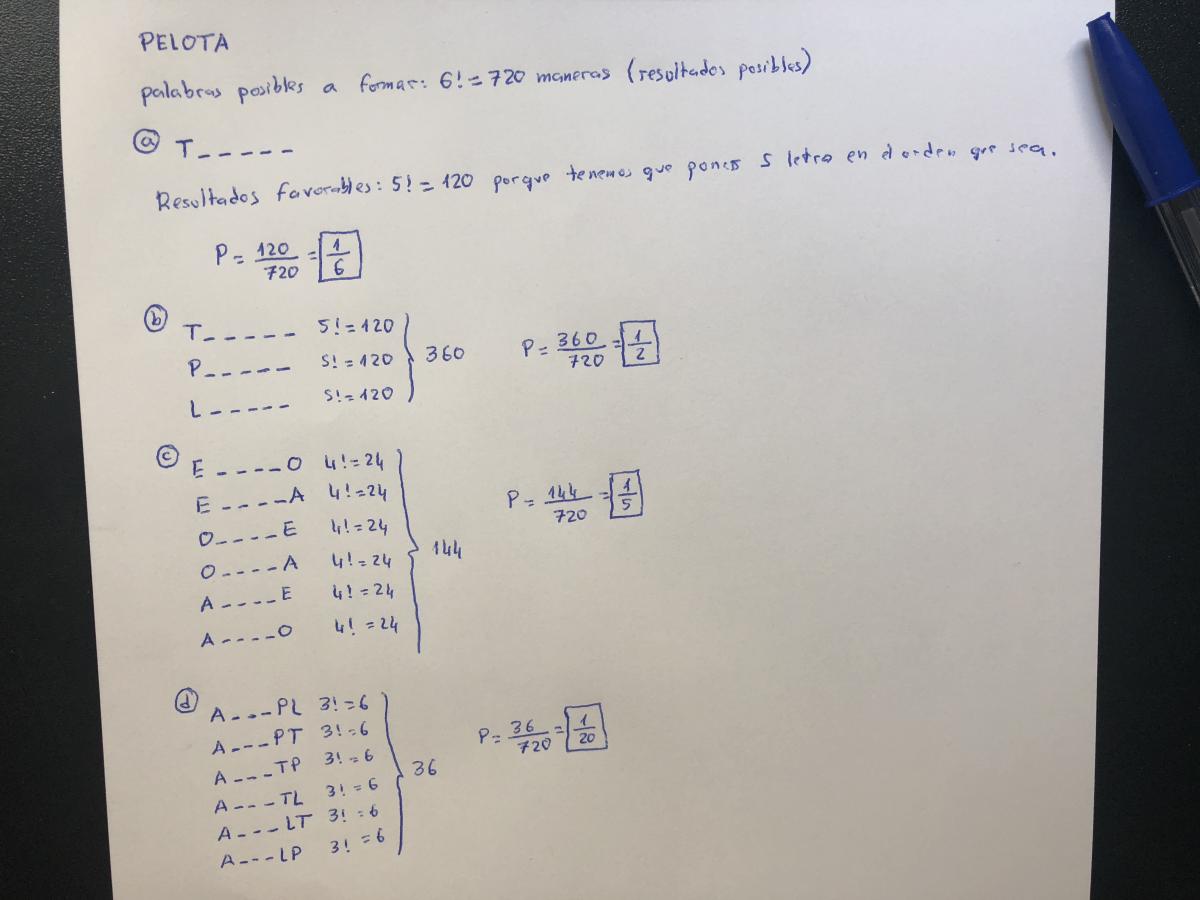 PELOTA
palabras posibles a formar: 6! = 720 maneras (resultados posibles)
ⓐ T _ _ _ _ _
Resultados favorables: 5! = 120 porque tenemos que poner 5 letra en el orden que sea.
P = 120/720 = 1/6
ⓑ T _ _ _ _ _ 5! = 120
P _ _ _ _ _ 5! = 120 } 360 P = 360/720 = 1/2
L _ _ _ _ _ 5! = 120
ⓒ E _ _ _ _ O 4! = 24
E _ _ _ _ A 4! = 24 P = 144/720 = 1/5
O _ _ _ _ E 4! = 24
O _ _ _ _ A 4! = 24 } 144
A _ _ _ _ E 4! = 24
A _ _ _ _ O 4! = 24
ⓓ A _ _ _ PL 3! = 6
A _ _ _ PT 3! = 6 P = 36/720 = 1/20
A _ _ _ TP 3! = 6 } 36
A _ _ _ TL 3! = 6
A _ _ _ LT 3! = 6
A _ _ _ LP 3! = 6